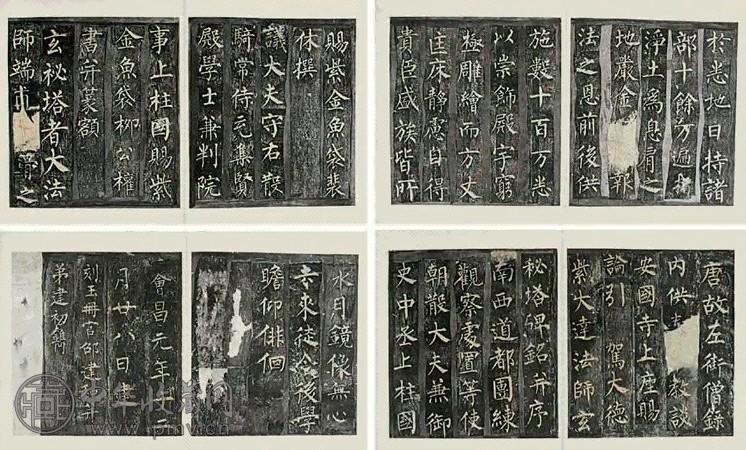 賜紫金魚袋裴
休撰
議大夫守右散
騎常侍充集賢
殿學士兼判院
事上柱國賜紫
金魚袋柳公權
書并篆額
玄秘塔者大法
師端 骨之
於悉地日持諸
部十餘万遍指
淨土爲息肩之
地嚴金 報
法之恩前後供
施數十百万悉
以崇飾殿宇窮
極雕繪而方丈
匡床靜慮自得
貴臣盛族皆所
水月鏡像無心
去來徒令後學
瞻仰徘徊
會昌元年十二
月廿八日建
刻玉冊官邵建和并
弟建初鐫
唐故左街僧錄
內供 教談
安國寺上座賜
論引 駕大德
紫大達法師玄
秘塔碑銘并序
南西道都團練
觀察處置等使
朝散大夫兼御
史中丞上柱國